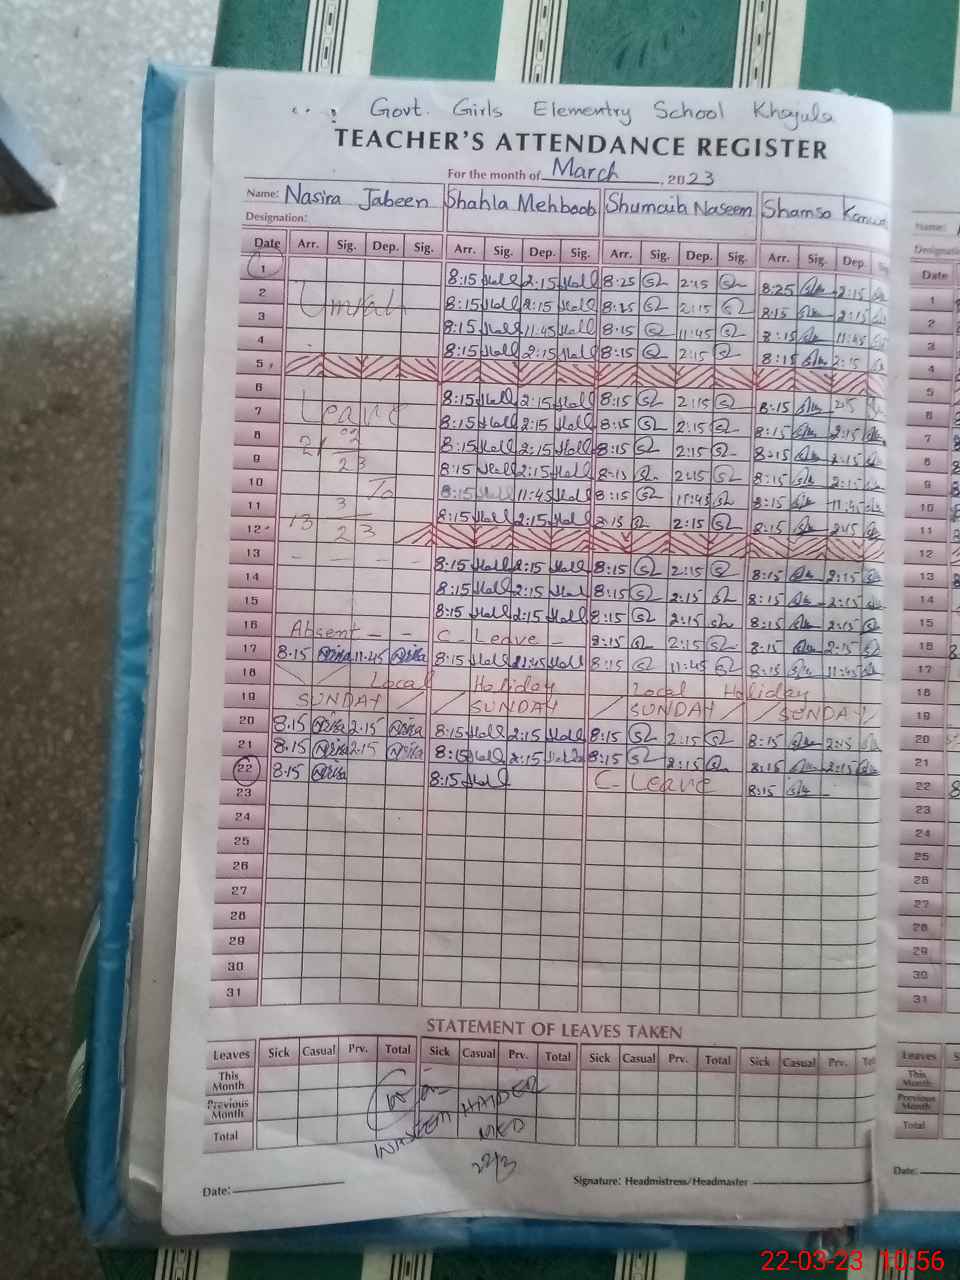 Govt. Girls Elementry School Khajula
TEACHER'S ATTENDANCE REGISTER
For the month of March, 2023
Name: Nasira Jabeen Shahla Mehboob Shumaih Naseem Shamsa
Designation:
Date Arr. Sig. Dep. Sig. Arr. Sig. Dep. Sig. Arr. Sig. Dep. Sig. Arr. Sig. Dep.
1 8:15 2:15 8:25 2:15 8:25 2:15
2 Umrah 8:15 2:15 8:25 2:15 8:15 2:15
3 8:15 11:45 8:15 11:45 8:15 11:45
4 8:15 2:15 8:15 2:15 8:15 2:15
5
6 Leave 8:15 2:15 8:15 2:15 8:15 2:15
7 8:15 2:15 8:15 2:15 8:15 2:15
8 21 02 23 8:15 2:15 8:15 2:15 8:15 2:15
9 8:15 2:15 8:15 2:15 8:15 2:15
10 To 8:15 11:45 8:15 11:45 8:15 11:45
11 13 3 23 8:15 2:15 8:15 2:15 8:15 2:15
12
13 - - - - 8:15 2:15 8:15 2:15 8:15 2:15
14 8:15 2:15 8:15 2:15 8:15 2:15
15 8:15 2:15 8:15 2:15 8:15 2:15
16 Absent - - C- Leave - 8:15 2:15 8:15 2:15
17 8.15 11.45 8:15 11:45 8:15 11:45 8:15 11:45
18 Local Holiday Local Holiday
19 SUNDAY SUNDAY SUNDAY SUNDAY
20 8.15 2.15 8:15 2:15 8:15 2:15 8:15 2:15
21 8.15 2.15 8:15 2:15 8:15 2:15 8:15 2:15
22 8:15 8:15 C- Leave 8:15
23
24
25
26
27
28
29
30
31
STATEMENT OF LEAVES TAKEN
Leaves Sick Casual Prv. Total Sick Casual Prv. Total Sick Casual Prv. Total Sick Casual Prv.
This Month
Previous Month
Total
WASEEM HAIDER
22/3
Date:
Signature: Headmistress/Headmaster
Name:
Date
1
2
3
4
5
6
7
8
9
10
11
12
13
14
15
16
17
18
19
20
21
22
23
24
25
26
27
28
29
30
31
Leaves
This Month
Previous Month
Total
Date:
22-03-23 10:56